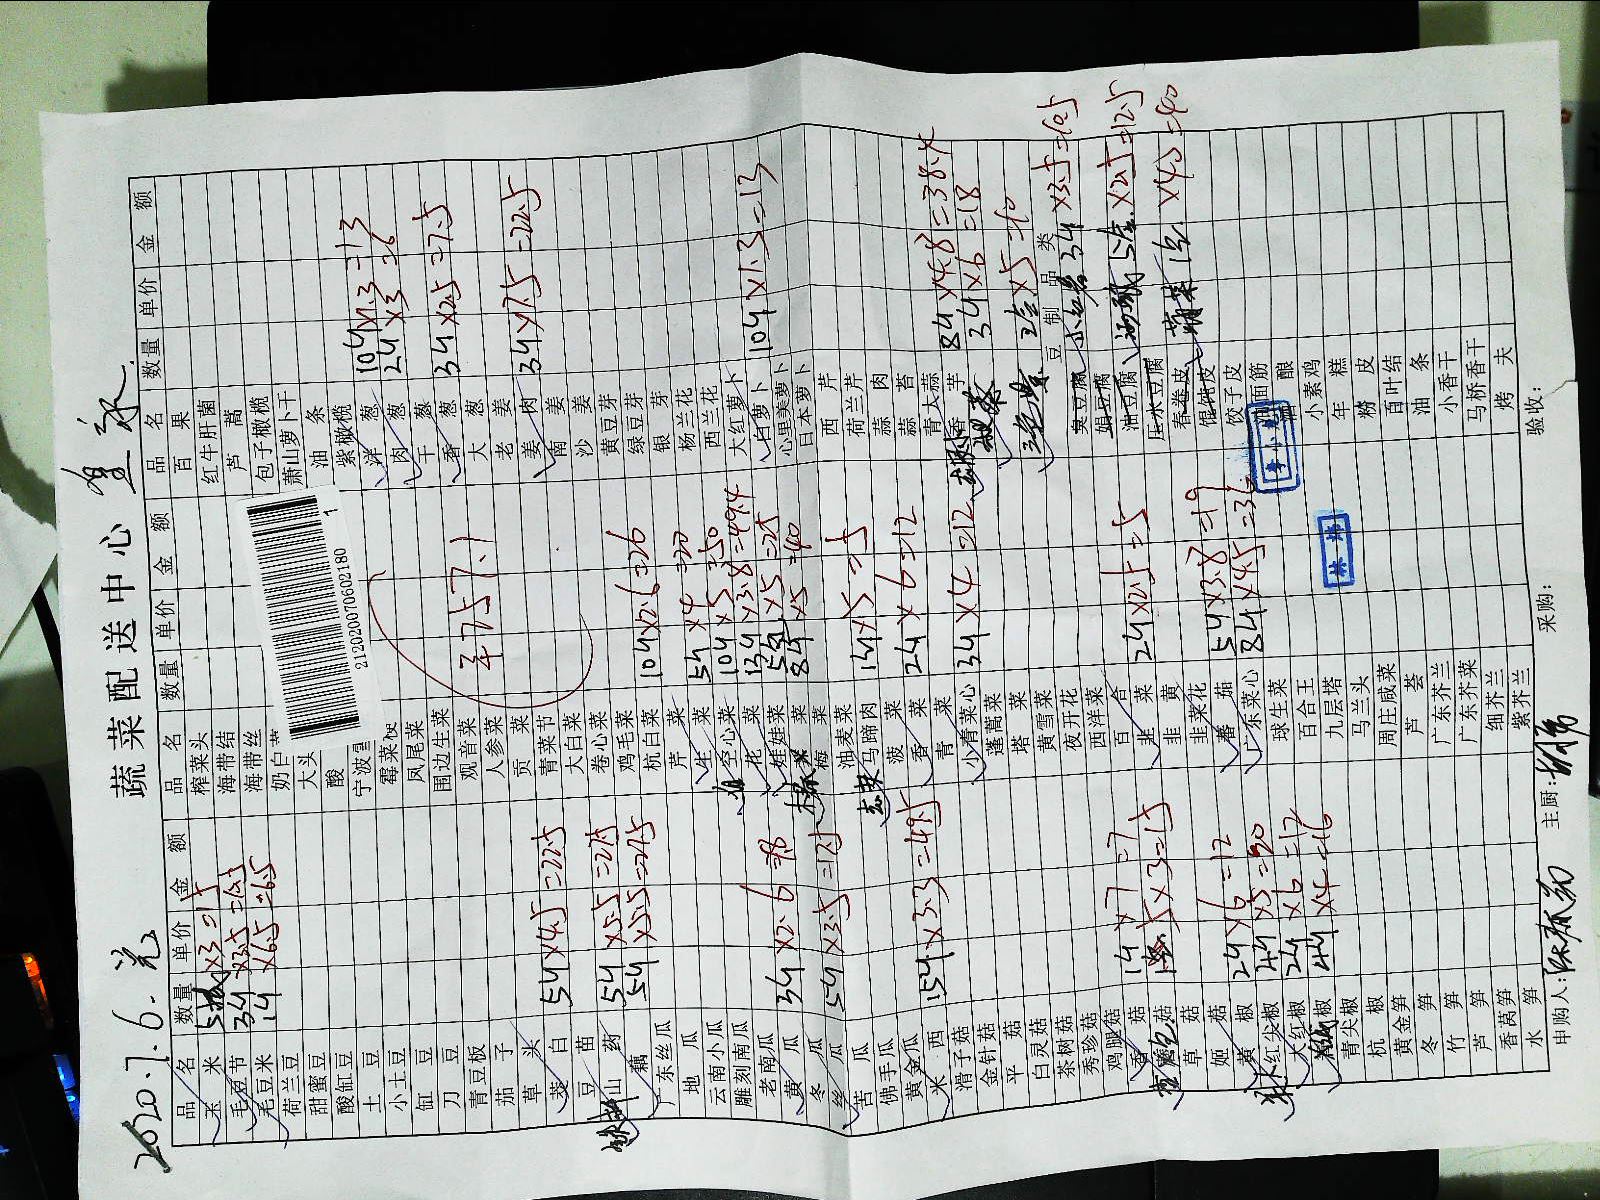 2020.7.6.
蔬菜配送中心
品名 数量 单价 金额 品名 数量 单价 金额 品名 数量 单价 金额
玉米 ×3=15
毛豆节 3斤 ×3.5
毛豆米 1斤 ×6.5=6.5
荷兰豆
甜蜜豆
酸缸豆
土豆
小土豆
缸豆
刀豆
青豆板
茄子
草头
茭白 5斤×4.5=22.5
豆苗
山药 5斤×5.5=27.5
藕 5斤×5.5=27.5
广东丝瓜
地瓜
云南小瓜
雕刻南瓜
老南瓜
黄瓜 3斤×2.6=7.8
冬瓜
丝瓜 5斤×3.5
苦瓜
佛手瓜
黄金瓜
米西 15斤×3.3=49.5
滑子菇
金针菇
平菇
白灵菇
茶树菇
秀珍菇
鸡腿菇
香菇 1斤×7=7
5×3=15
草菇
姬菇
黄椒 2斤×6=12
红尖椒 4斤×5=20
大红椒 2斤×6=12
4斤×4=16
青尖椒
杭椒
黄金笋
冬笋
竹笋
芦笋
香莴笋
水笋
榨菜头
海带结
海带丝
奶白菜
大头
酸
宁波雪
霉菜梗
凤尾菜
围边生菜
观音菜
人参菜
贡菜
青菜节
大白菜
卷心菜
鸡毛菜
杭白菜 10斤×2.6=26
芹菜
生菜 5斤×4=20
空心菜 10斤×5=50
花菜 13斤×3.8=49.4
娃娃菜 5斤×5=25
8斤×5=40
梅菜
油麦菜
马蹄肉 1斤×5=5
菠菜
香菜 2斤×6=12
青菜
小青菜心 3斤×4=12
蓬蒿菜
塔菜
黄雪菜
夜开花
西洋菜
百合
韭菜 2斤×2.5=5
韭黄
韭菜花
番茄 5斤×3.8=19
广东菜心 8斤×4.5=36
球生菜
百合王
九层塔
马兰头
周庄咸菜
芦荟
广东芥兰
广东芥菜
细芥兰
紫芥兰
212020200706602180
1
757.1
百果
红牛肝菌
芦蒿
包子橄榄
萧山萝卜干
油条
紫橄榄
洋葱 10斤×1.3=13
肉葱 2斤×3=6
干葱
香葱 3斤×2.5=7.5
大葱
老姜
姜肉 3斤×7.5=22.5
南姜
沙姜
黄豆芽
绿豆芽
银芽
杨兰花
西兰花
大红萝卜
白萝卜 10斤×1.3=13
心里美萝卜
日本萝卜
西芹
荷兰芹
蒜肉
蒜苔
青大蒜
香芋 8斤×4.8=38.4
3斤×6=18
×5=10
豆制品类
臭豆腐 3斤×3.5=10.5
绢豆腐
油豆腐 ×2.5=12.5
压水豆腐
春卷皮 ×4.0=40
馄饨皮
饺子皮
油面筋
酒酿
小素鸡
年糕
精皮
百叶结
油条
小香干
马桥香干
烤夫
申购人: 主厨: 采购: 验收: